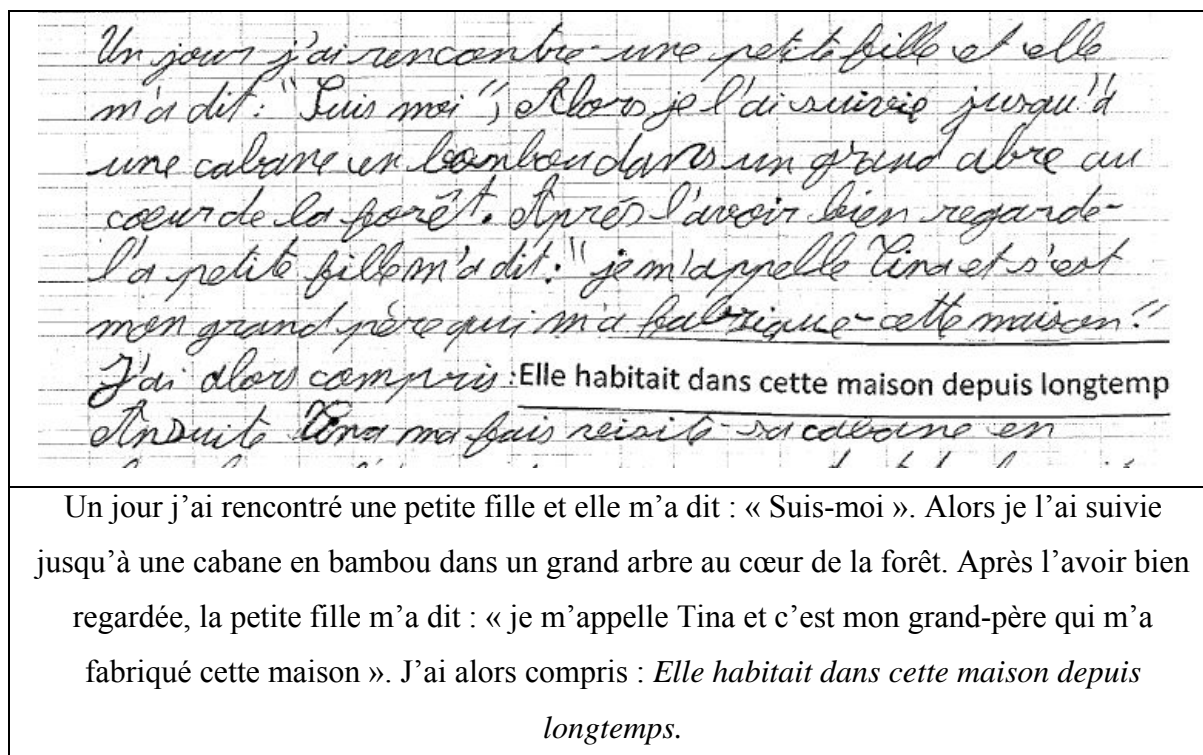 Un jour j'ai rencontré une petite fille et elle
m'a dit : "Suis moi", Alors je l'ai suivie jusqu'à
une cabane en bambou dans un grand abre au
cœur de la forêt. Après l'avoir bien regardé
l'a petite fille m'a dit : "je m'appelle Tina et s'est
mon grand père qui m'a fabriqué cette maison."
J'ai alors compris : Elle habitait dans cette maison depuis longtemp
Ansuite Tina ma fais visité sa cabane en
Un jour j'ai rencontré une petite fille et elle m'a dit : « Suis-moi ». Alors je l'ai suivie
jusqu'à une cabane en bambou dans un grand arbre au cœur de la forêt. Après l'avoir bien
regardée, la petite fille m'a dit : « je m'appelle Tina et c'est mon grand-père qui m'a
fabriqué cette maison ». J'ai alors compris : Elle habitait dans cette maison depuis
longtemps.